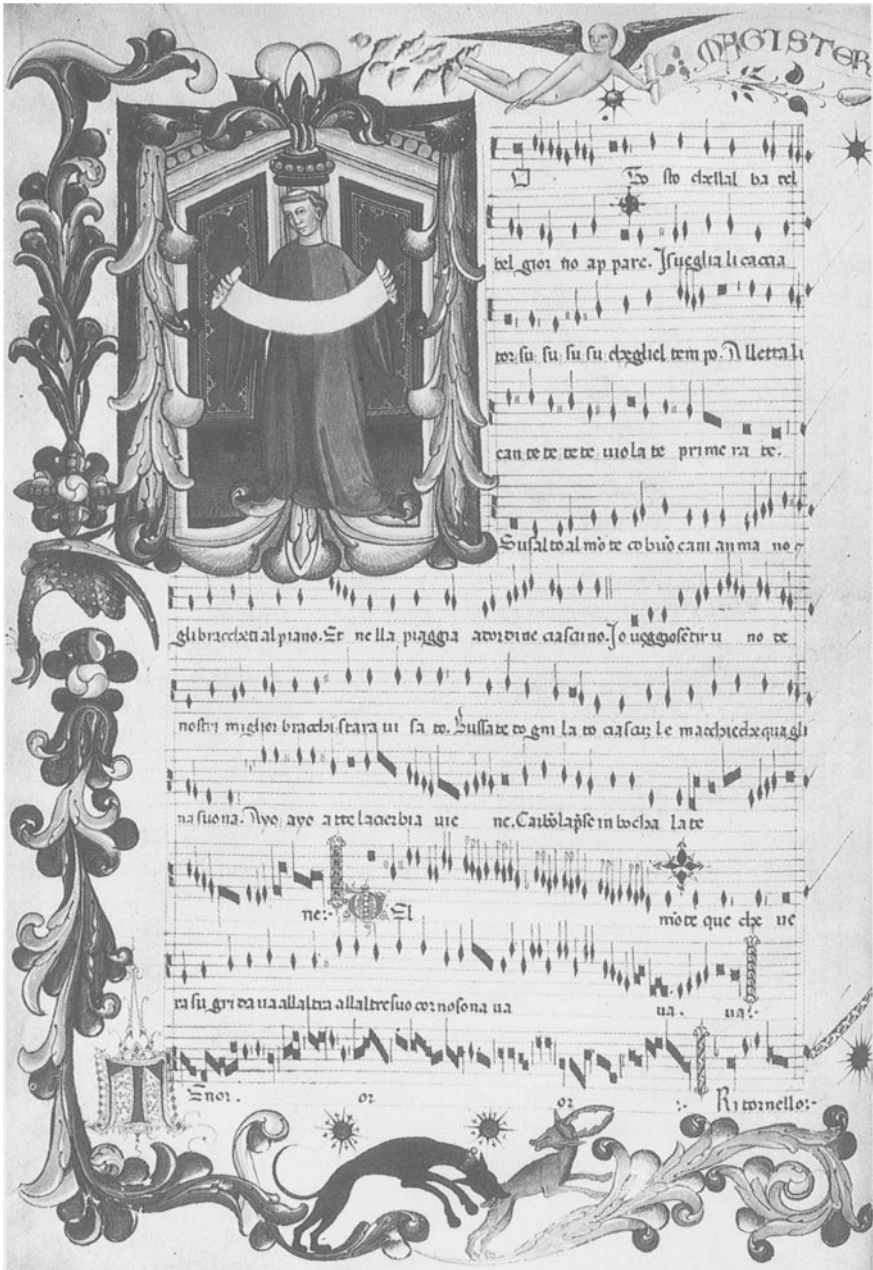 MAGISTER
To sto chellal ba del
bel gior no ap pare. Isueglia li caccia
tor su su su su chegliel tem po. Alletta li
can te te te te uiola te prime ra te.
Su sal to al mõ te co buõ cani an ma no
gli bracchetti al piano. Et ne lla piaggia adordine ciascino. Io ueggio sẽtir u no de
nostri miglior bracchi stara ui sa to. Bussate do gni la to ciascuz le macchie che qua gli
na suona. Ayo ayo a tte la cierbia uie ne. Carbõ lap̃se in bocha la te
ne: El mõte que che ue
ra su gri da ua allaltra allaltre suo corno sona ua ua. ua:
Enor. or or :- Ritornello:-